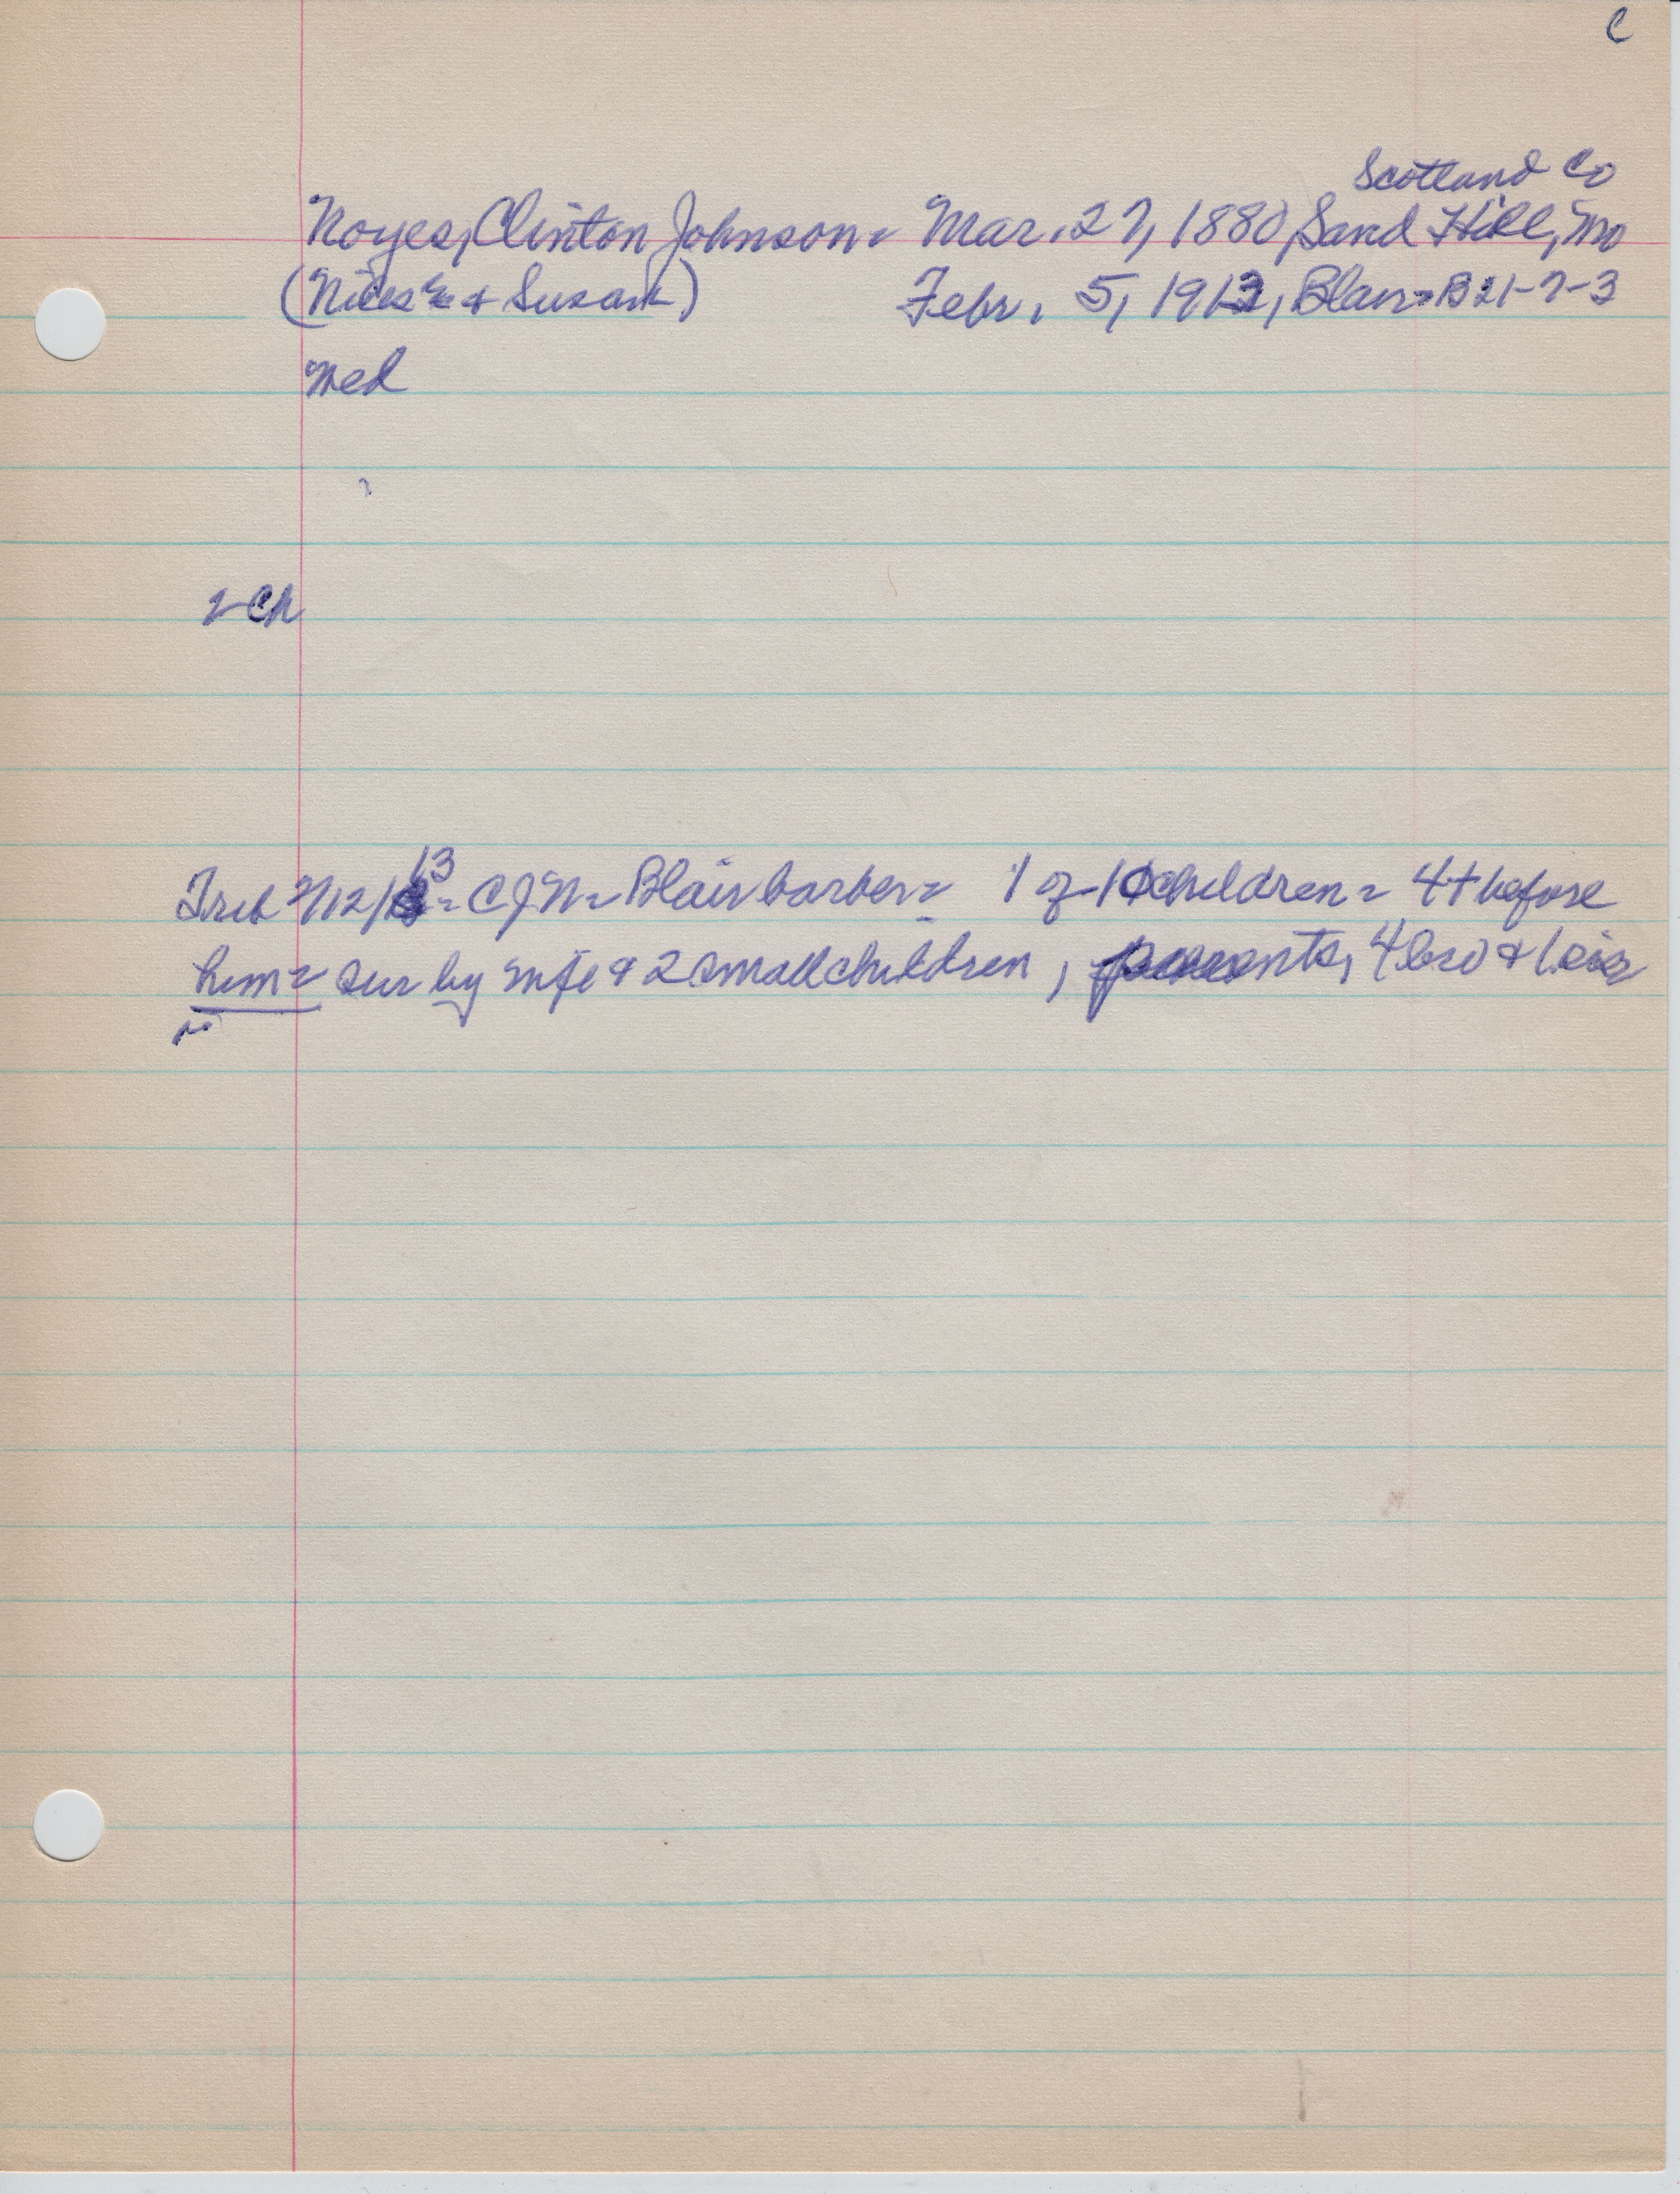 C
Scotland Co
Noyes, Clinton Johnson = Mar. 27, 1880, Sand Hill, Mo
(Niles E & Susan) Febr. 5, 1913, Blair = B21-7-3
Med
2 Ch
Trib 2/12/13 = CJN = Blair barber = 1 of 10 children = 4 + before
him = sur by wife & 2 small children, parents, 4 bro & 1 sis